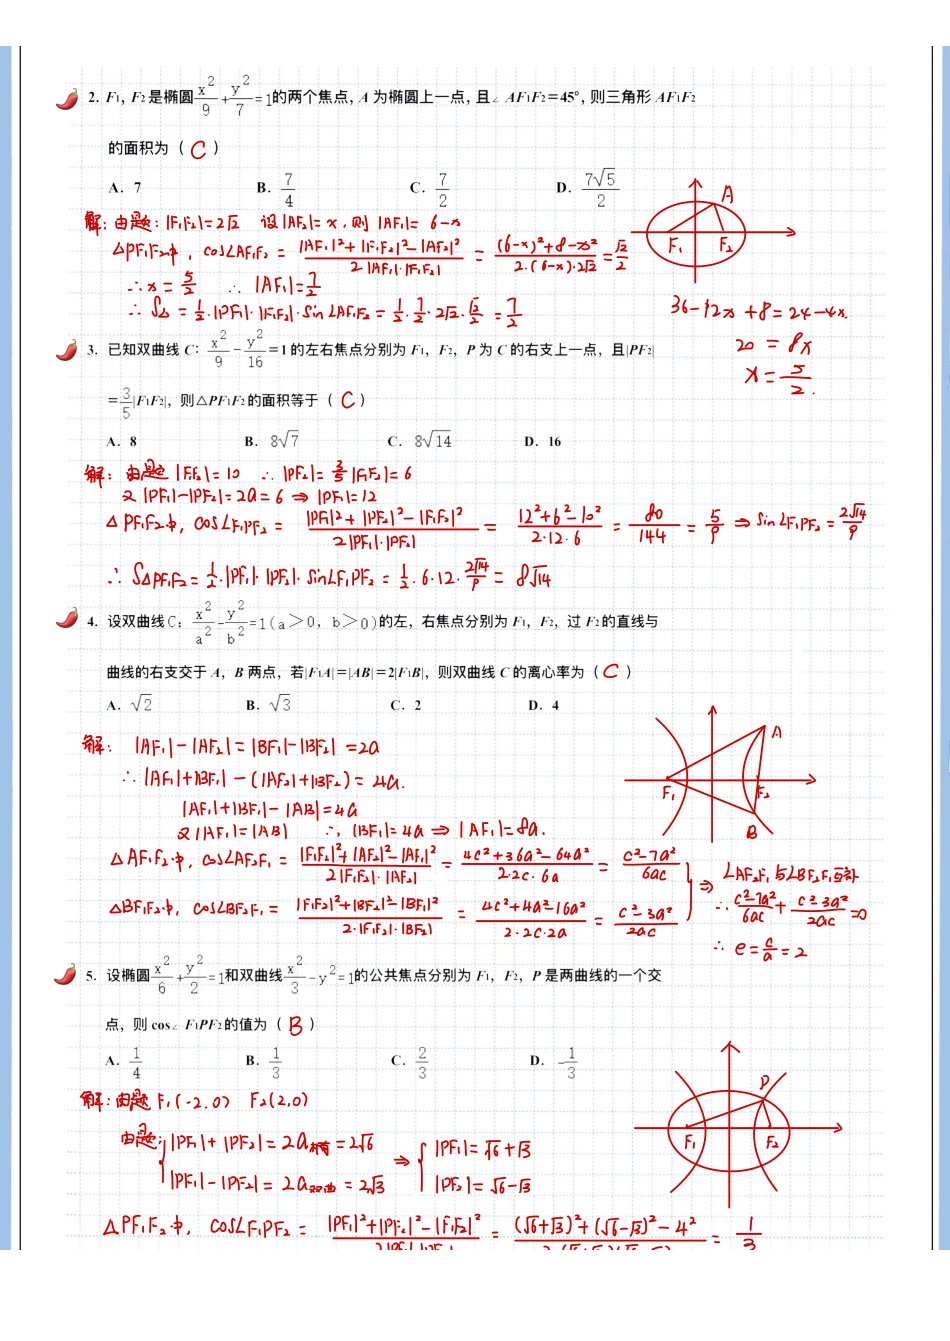 2. F1, F2 是椭圆 x²/9 + y²/7 = 1 的两个焦点, A 为椭圆上一点, 且∠ AF1F2=45°, 则三角形 AF1F2
的面积为 ( C )
A. 7 B. 7/4 C. 7/2 D. 7√5/2
解: 由题: |F₁F₂|=2√2 设|AF₂|=x, 则 |AF₁|= 6-x
△PF₁F₂中, cos∠AF₁F₂ = (|AF₁|²+|F₁F₂|²-|AF₂|²)/(2|AF₁|·|F₁F₂|) = ((6-x)²+8-x²)/(2·(6-x)·2√2) = √2/2
∴x = 5/2 ∴ |AF₁|= 7/2
∴ S△ = 1/2·|PF₁|·|F₁F₂|·sin∠AF₁F₂ = 1/2·7/2·2√2·√2/2 = 7/2
A
F₁ F₂
36-12x+8=24-4x.
20 = 8x
x = 5/2.
3. 已知双曲线 C: x²/9 - y²/16 = 1 的左右焦点分别为 F1, F2, P 为 C 的右支上一点, 且|PF2|
= 3/5|F1F2|, 则△PF1F2 的面积等于 ( C )
A. 8 B. 8√7 C. 8√14 D. 16
解: 由题 |F₁F₂|=10 ∴ |PF₂|= 3/5|F₁F₂|=6
又|PF₁|-|PF₂|=2a=6 ⇒ |PF₁|=12
△PF₁F₂中, cos∠F₁PF₂ = (|PF₁|²+|PF₂|²-|F₁F₂|²)/(2|PF₁|·|PF₂|) = (12²+6²-10²)/(2·12·6) = 80/144 = 5/9 ⇒ sin∠F₁PF₂ = 2√14/9
∴ S△PF₁F₂ = 1/2·|PF₁|·|PF₂|·sin∠F₁PF₂ = 1/2·6·12·2√14/9 = 8√14
4. 设双曲线 C: x²/a² - y²/b² = 1(a>0, b>0)的左, 右焦点分别为 F1, F2, 过 F2 的直线与
曲线的右支交于 A, B 两点, 若|F1A|=|AB|=2|F1B|, 则双曲线 C 的离心率为 ( C )
A. √2 B. √3 C. 2 D. 4
解: |AF₁|-|AF₂|=|BF₁|-|BF₂|=2a
∴|AF₁|+|BF₁|-(|AF₂|+|BF₂|)=4a.
|AF₁|+|BF₁|-|AB|=4a
又|AF₁|=|AB| ∴, |BF₁|=4a ⇒ |AF₁|=8a.
A
F₁ F₂
B
△AF₁F₂中, cos∠AF₂F₁ = (|F₁F₂|²+|AF₂|²-|AF₁|²)/(2|F₁F₂|·|AF₂|) = (4c²+36a²-64a²)/(2·2c·6a) = (c²-7a²)/(6ac)
△BF₁F₂中, cos∠BF₂F₁ = (|F₁F₂|²+|BF₂|²-|BF₁|²)/(2·|F₁F₂|·|BF₂|) = (4c²+4a²-16a²)/(2·2c·2a) = (c²-3a²)/(2ac)
⇒ ∠AF₂F₁与∠BF₂F₁互补
∴ (c²-7a²)/(6ac) + (c²-3a²)/(2ac) =0
∴ e = c/a = 2
5. 设椭圆 x²/6 + y²/2 = 1 和双曲线 x²/3 - y² = 1 的公共焦点分别为 F1, F2, P 是两曲线的一个交
点, 则 cos∠ F1PF2 的值为 ( B )
A. 1/4 B. 1/3 C. 2/3 D. -1/3
解: 由题 F₁(-2,0) F₂(2,0)
由题: { |PF₁|+|PF₂|=2a椭=2√6 ⇒ { |PF₁|=√6+√3
|PF₁|-|PF₂|=2a双曲=2√3 |PF₂|=√6-√3
P
F₁ F₂
△PF₁F₂中, cos∠F₁PF₂ = (|PF₁|²+|PF₂|²-|F₁F₂|²) = ((√6+√3)²+(√6-√3)²-4²) = 1/3